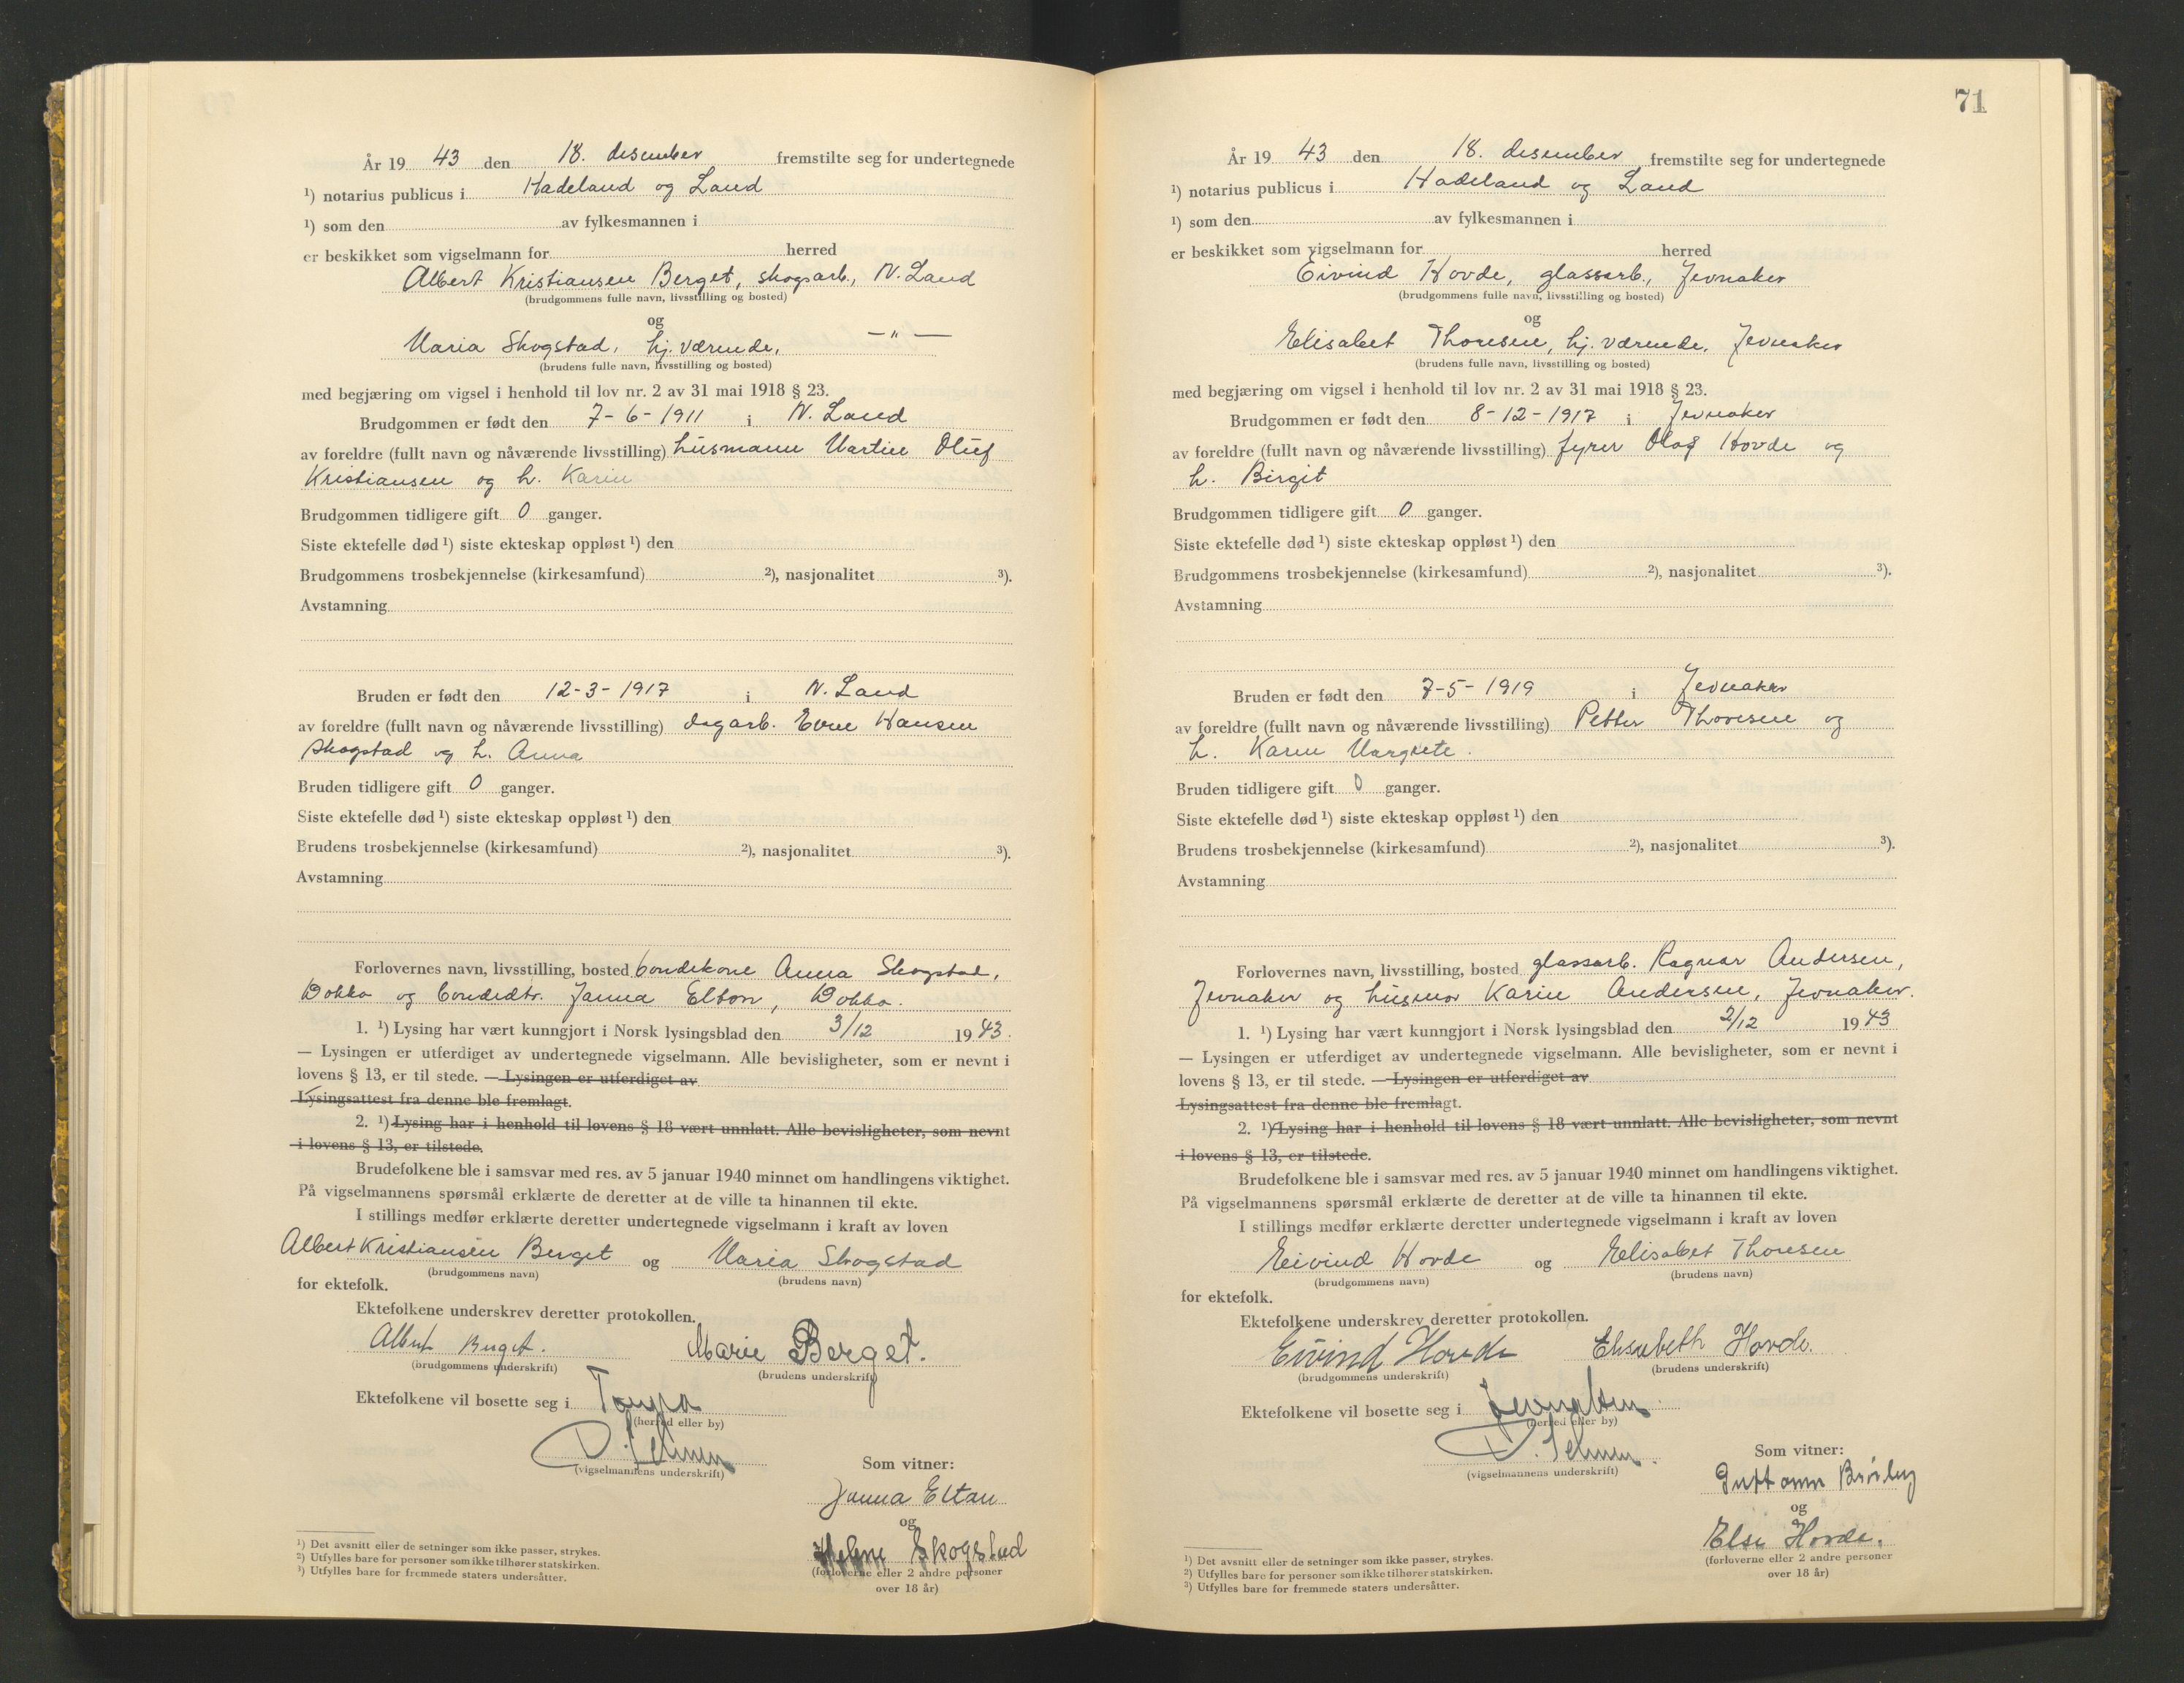 År 19 43 den 18. desember fremstilte seg for undertegnede
¹) notarius publicus i Hadeland og Land
¹) som den av fylkesmannen i
er beskikket som vigselmann for herred
Albert Kristiansen Berget, skogsarb., N. Land
(brudgommens fulle navn, livsstilling og bosted)
og
Maria Skogstad, hj. værende, — " —
(brudens fulle navn, livsstilling og bosted)
med begjæring om vigsel i henhold til lov nr. 2 av 31 mai 1918 § 23.
Brudgommen er født den 7-6-1911 i N. Land
av foreldre (fullt navn og nåværende livsstilling) husmann Martin Oluf
Kristiansen og h. Karin
Brudgommen tidligere gift 0 ganger.
Siste ektefelle død ¹) siste ekteskap oppløst ¹) den
Brudgommens trosbekjennelse (kirkesamfund) ²), nasjonalitet ³).
Avstamning
Bruden er født den 12-3-1917 i N. Land
av foreldre (fullt navn og nåværende livsstilling) dagarb. Even Hansen
Skogstad og h. Anna
Bruden tidligere gift 0 ganger.
Siste ektefelle død ¹) siste ekteskap oppløst ¹) den
Brudens trosbekjennelse (kirkesamfund) ²), nasjonalitet ³).
Avstamning
Forlovernes navn, livsstilling, bosted bondekone Anna Skogstad,
Dokka og bondedtr. Janna Elton, Dokka.
1. ¹) Lysing har vært kunngjort i Norsk lysingsblad den 3/12 19 43.
— Lysingen er utferdiget av undertegnede vigselmann. Alle bevisligheter, som er nevnt i
lovens § 13, er til stede. — Lysingen er utferdiget av
Lysingsattest fra denne ble fremlagt.
2. ¹) Lysing har i henhold til lovens § 18 vært unnlatt. Alle bevisligheter, som nevnt
i lovens § 13, er tilstede.
Brudefolkene ble i samsvar med res. av 5 januar 1940 minnet om handlingens viktighet.
På vigselmannens spørsmål erklærte de deretter at de ville ta hinannen til ekte.
I stillings medfør erklærte deretter undertegnede vigselmann i kraft av loven
Albert Kristiansen Berget og Maria Skogstad
(brudgommens navn) (brudens navn)
for ektefolk.
Ektefolkene underskrev deretter protokollen.
Albert Berget. Marie Berget.
(brudgommens underskrift) (brudens underskrift)
Ektefolkene vil bosette seg i Torpa
(herred eller by)
(vigselmannens underskrift)
Som vitner:
Janna Elton
og
Helene Skogstad
(forloverne eller 2 andre personer
over 18 år)
¹) Det avsnitt eller de setninger som ikke passer, strykes.
²) Utfylles bare for personer som ikke tilhører statskirken.
³) Utfylles bare for fremmede staters undersåtter.
71
År 19 43 den 18. desember fremstilte seg for undertegnede
¹) notarius publicus i Hadeland og Land
¹) som den av fylkesmannen i
er beskikket som vigselmann for herred
Eivind Hovde, glassarb., Jevnaker
(brudgommens fulle navn, livsstilling og bosted)
og
Elisabet Thoresen, hj. værende, Jevnaker
(brudens fulle navn, livsstilling og bosted)
med begjæring om vigsel i henhold til lov nr. 2 av 31 mai 1918 § 23.
Brudgommen er født den 8-12-1917 i Jevnaker
av foreldre (fullt navn og nåværende livsstilling) fyrer Olaf Hovde og
h. Birgit
Brudgommen tidligere gift 0 ganger.
Siste ektefelle død ¹) siste ekteskap oppløst ¹) den
Brudgommens trosbekjennelse (kirkesamfund) ²), nasjonalitet ³).
Avstamning
Bruden er født den 7-5-1919 i Jevnaker
av foreldre (fullt navn og nåværende livsstilling) Petter Thoresen og
h. Karen Margrete.
Bruden tidligere gift 0 ganger.
Siste ektefelle død ¹) siste ekteskap oppløst ¹) den
Brudens trosbekjennelse (kirkesamfund) ²), nasjonalitet ³).
Avstamning
Forlovernes navn, livsstilling, bosted glassarb. Ragnar Andersen,
Jevnaker og husmor Karin Andersen, Jevnaker.
1. ¹) Lysing har vært kunngjort i Norsk lysingsblad den 2/12 19 43
— Lysingen er utferdiget av undertegnede vigselmann. Alle bevisligheter, som er nevnt i
lovens § 13, er til stede. — Lysingen er utferdiget av
Lysingsattest fra denne ble fremlagt.
2. ¹) Lysing har i henhold til lovens § 18 vært unnlatt. Alle bevisligheter, som nevnt
i lovens § 13, er tilstede.
Brudefolkene ble i samsvar med res. av 5 januar 1940 minnet om handlingens viktighet.
På vigselmannens spørsmål erklærte de deretter at de ville ta hinannen til ekte.
I stillings medfør erklærte deretter undertegnede vigselmann i kraft av loven
Eivind Hovde og Elisabet Thoresen
(brudgommens navn) (brudens navn)
for ektefolk.
Ektefolkene underskrev deretter protokollen.
Eivind Hovde Elisabeth Hovde.
(brudgommens underskrift) (brudens underskrift)
Ektefolkene vil bosette seg i Jevnaker
(herred eller by)
(vigselmannens underskrift)
Som vitner:
og
Else Hovde.
(forloverne eller 2 andre personer
over 18 år)
¹) Det avsnitt eller de setninger som ikke passer, strykes.
²) Utfylles bare for personer som ikke tilhører statskirken.
³) Utfylles bare for fremmede staters undersåtter.